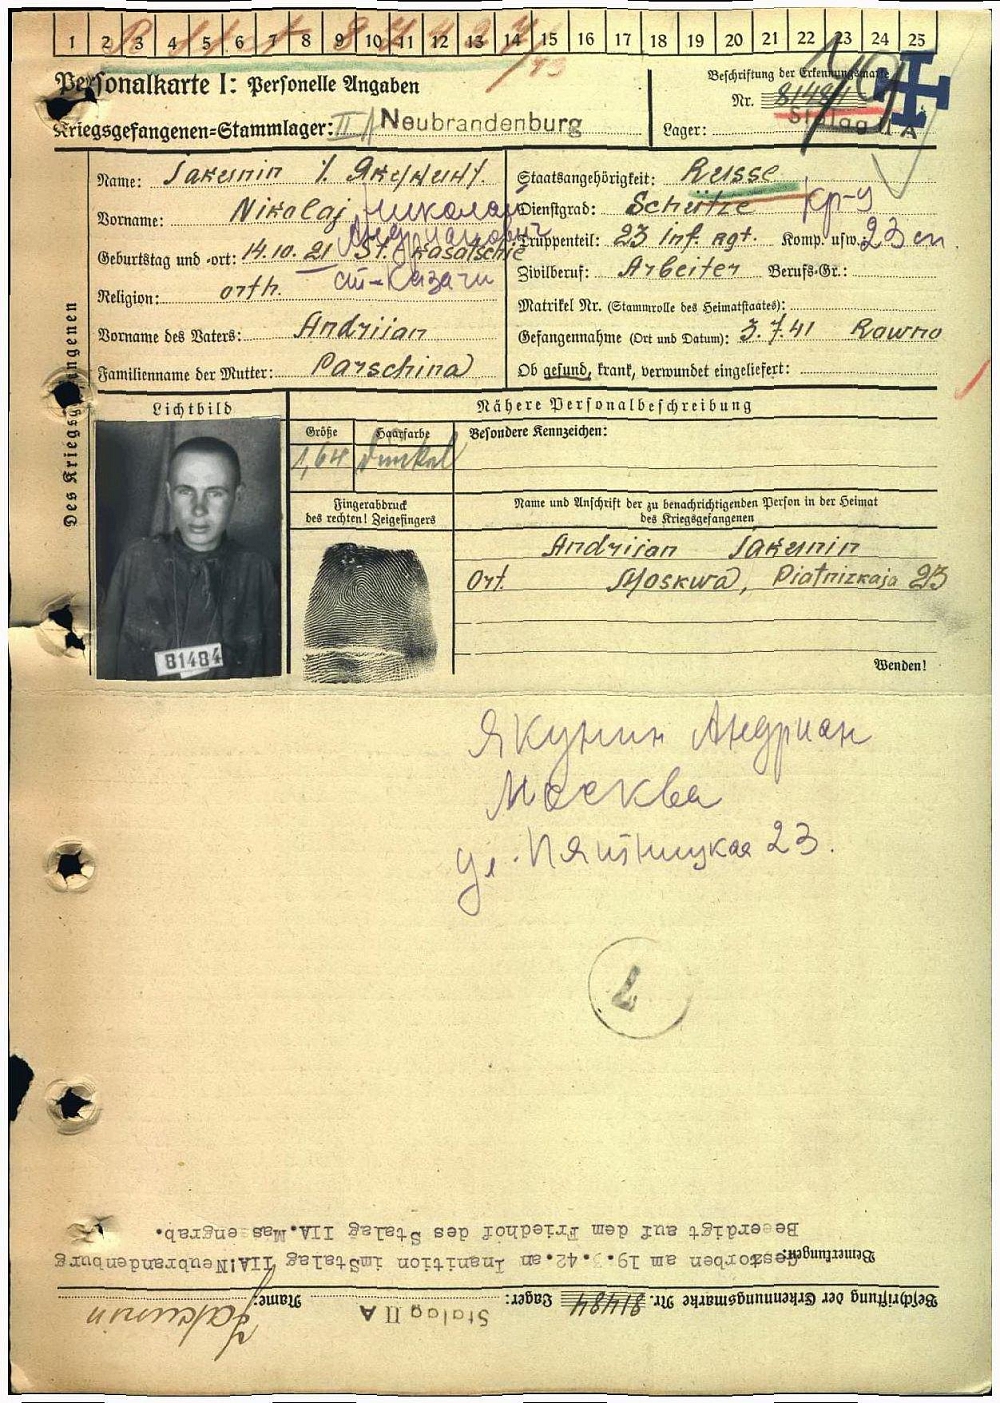 1 2 3 4 5 6 7 8 9 10 11 12 13 14 15 16 17 18 19 20 21 22 23 24 25
Personalkarte I: Personelle Angaben
Beschriftung der Erkennungsmarke
Nr. 81484
Kriegsgefangenen=Stammlager: II A Neubrandenburg
Lager: Stalag II A
Des Kriegsgefangenen
Name: Jakunin
Якунин.
Vorname: Nikolaj
Николай
Андрианович
Geburtstag und -ort: 14.10.21 St. Kasatschie
ст-Казачи
Religion: orth.
Vorname des Vaters: Andrijan
Familienname der Mutter: Parschina
Staatsangehörigkeit: Russe
Dienstgrad: Schütze
кр-ц
Truppenteil: 23 Inf. Rgt. Komp. usw.: 23 сп
Zivilberuf: Arbeiter Berufs-Gr.:
Matrikel Nr. (Stammrolle des Heimatstaates):
Gefangennahme (Ort und Datum): 3.7.41 Rawno
Ob gesund, krank, verwundet eingeliefert:
Lichtbild
Nähere Personalbeschreibung
Größe
1,64
Haarfarbe
Dunkel
Besondere Kennzeichen:
Fingerabdruck
des rechten! Zeigefingers
Name und Anschrift der zu benachrichtigenden Person in der Heimat
des Kriegsgefangenen
Andrijan Jakunin
Ort. Moskwa, Piatnizkaja 23
81484
Wenden!
Якунин Андриан
Москва
ул. Пятницкая 23.
Beschriftung der Erkennungsmarke Nr. 81484 Lager: Stalag II A Name: Jakunin
Bemerkungen:
Gestorben am 19.3.42.an Inanition imStalag IIA!Neubrandenburg
Beerdigt auf dem Friedhof des Stalag IIA.Massengrab.